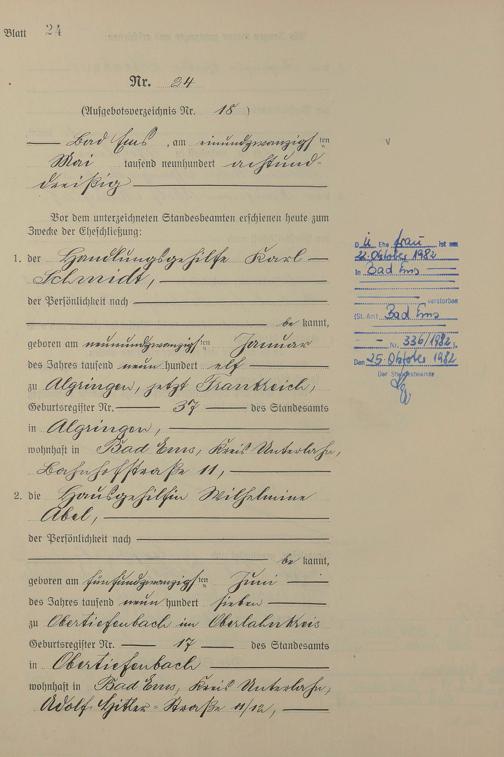 Blatt 24
Nr. 24
(Aufgebotsverzeichnis Nr. 18)
Bad Ems, am einundzwanzigsten
Mai tausend neunhundert achtund-
dreißig
Vor dem unterzeichneten Standesbeamten erschienen heute zum
Zwecke der Eheschließung:
1. der Handlungsgehilfe Karl
Schmidt,
der Persönlichkeit nach
be kannt,
geboren am neunundzwanzigsten Januar
des Jahres tausend neun hundert elf
zu Algringen, jetzt Frankreich,
Geburtsregister Nr. 37 des Standesamts
in Algringen,
wohnhaft in Bad Ems, Kreis Unterlahn,
Bahnhofstraße 11,
2. die Hausgehilfin Wilhelmine
Abel,
der Persönlichkeit nach
be kannt,
geboren am fünfundzwanzigsten Juni
des Jahres tausend neun hundert sieben
zu Obertiefenbach im Oberlahnkreis
Geburtsregister Nr. 17 des Standesamts
in Obertiefenbach
wohnhaft in Bad Ems, Kreis Unterlahn,
Adolf-Hitler-Straße 11/12,
D ie Ehe frau ist am
22. Oktober 1982
in Bad Ems
verstorben
(St. Amt Bad Ems
Nr. 336/1982).
Den 25. Oktober 1982
Der Standesbeamte